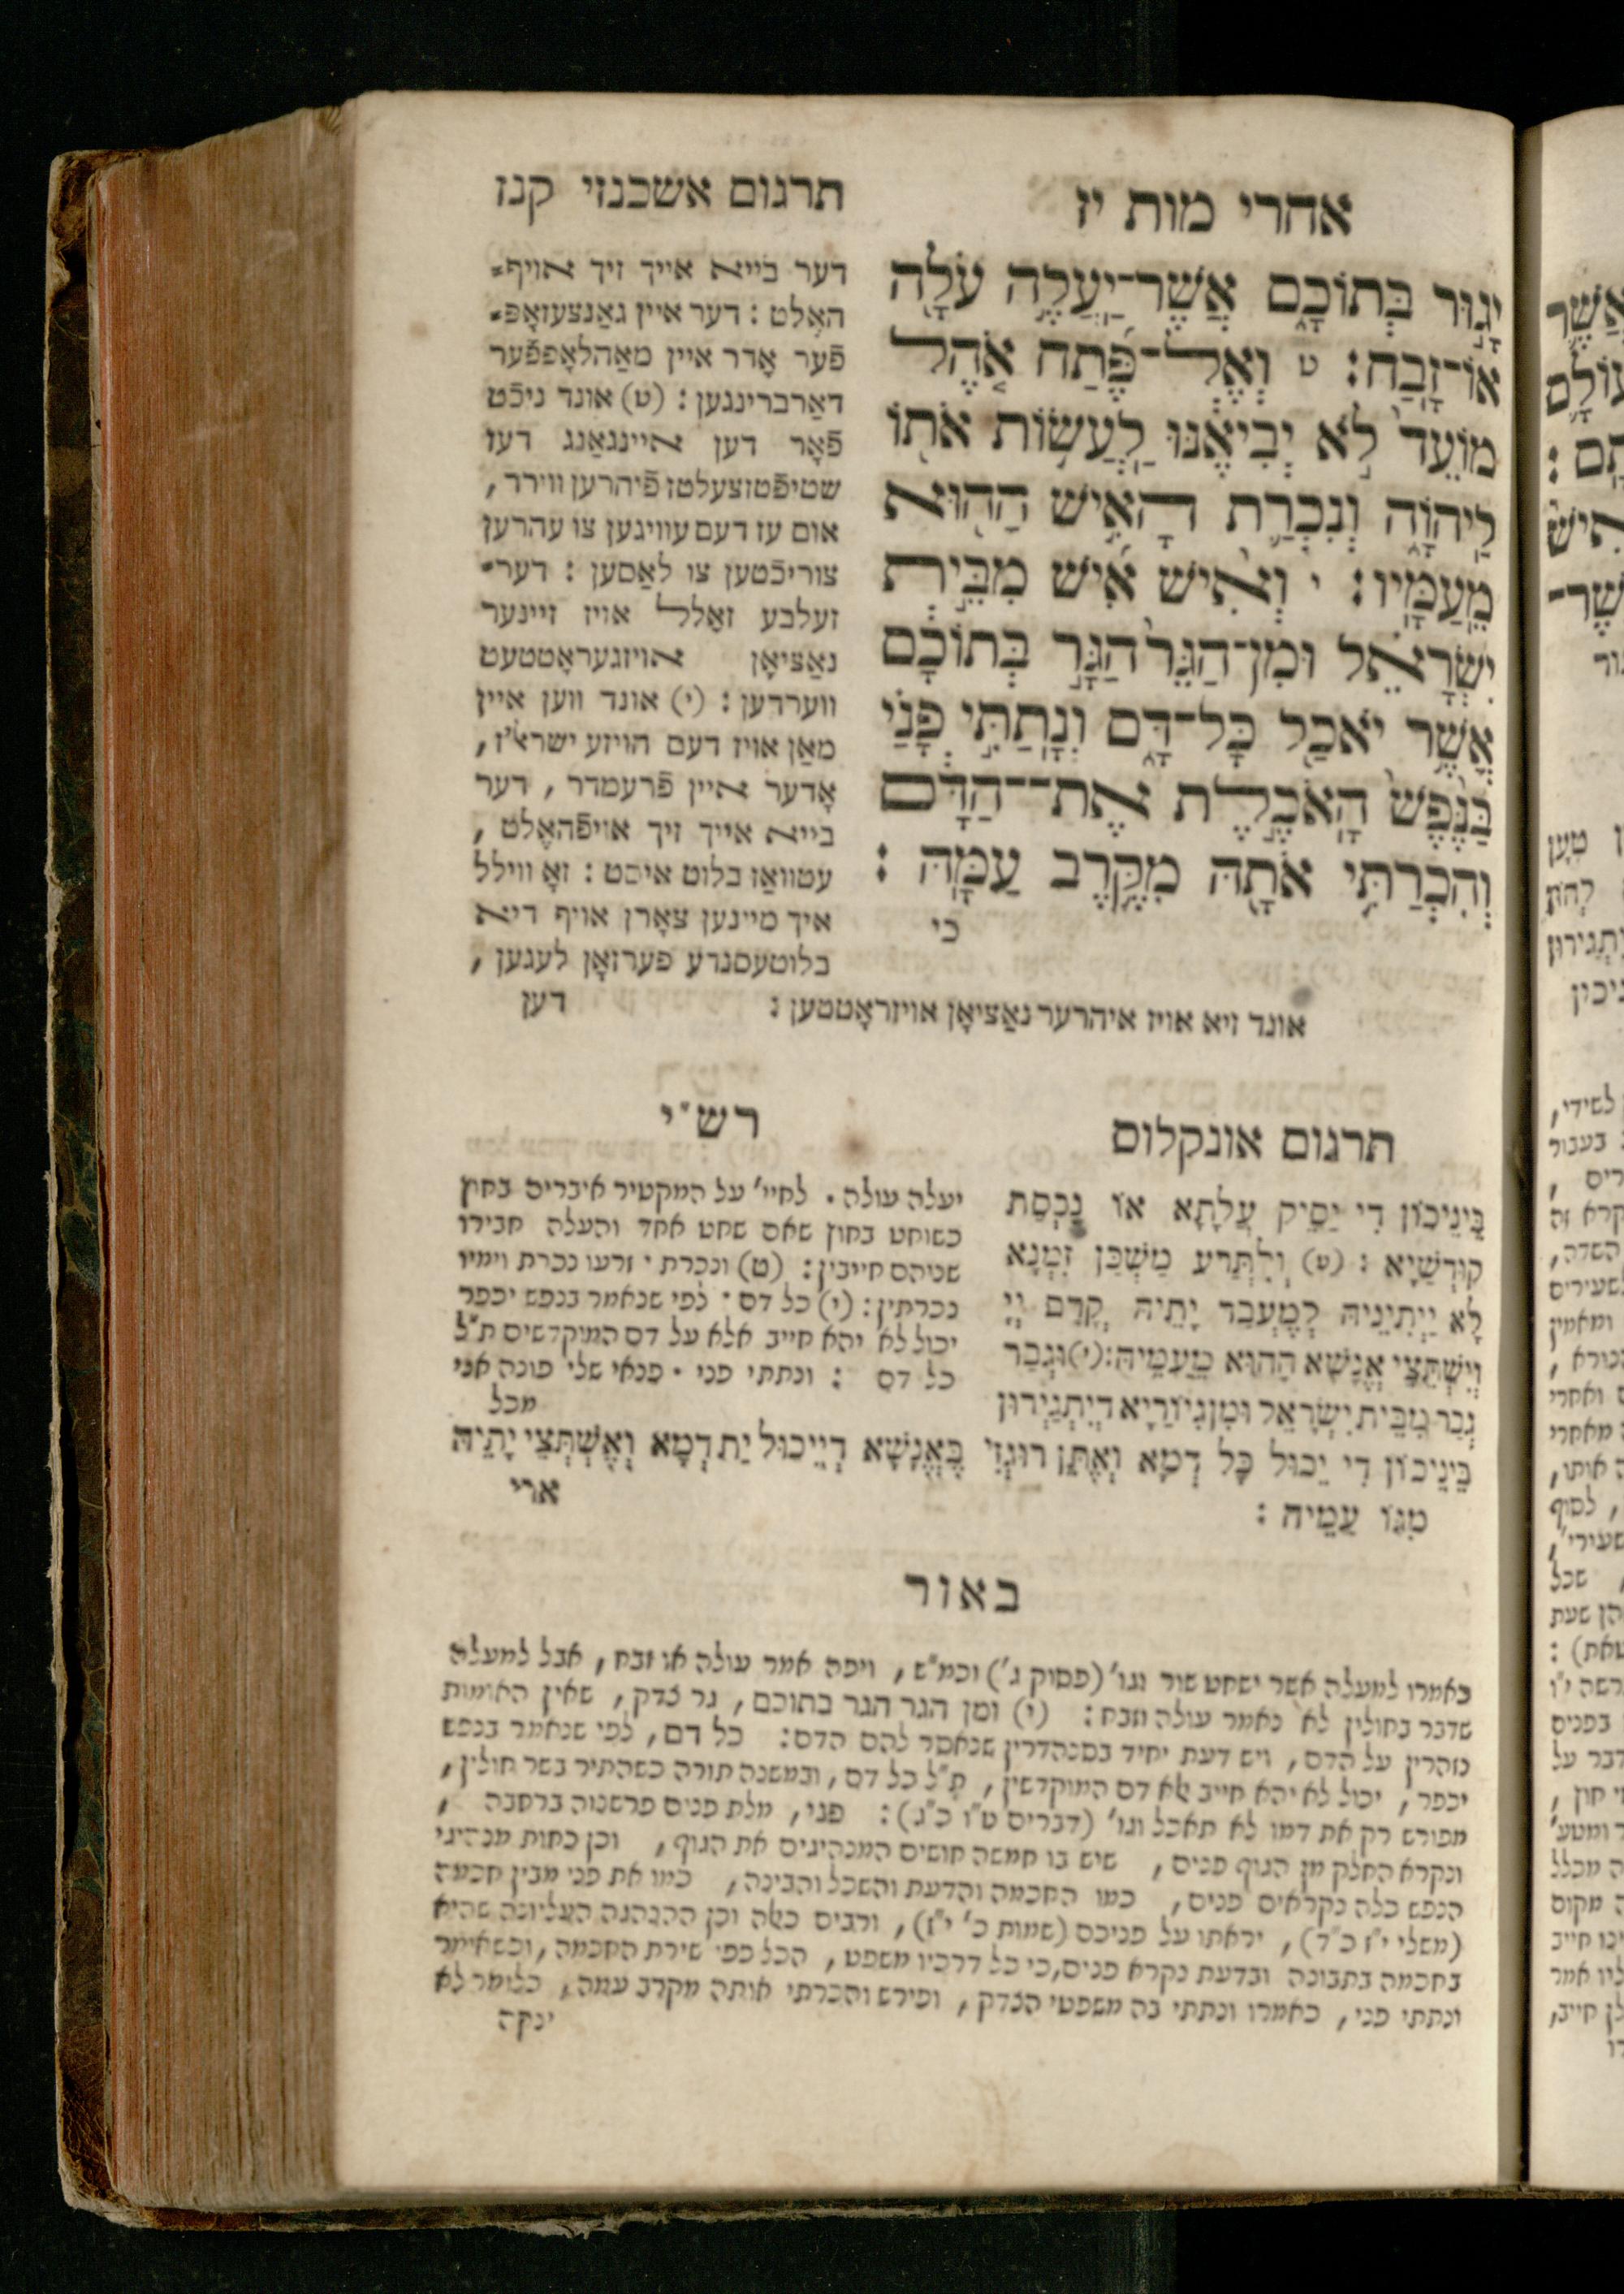 אחרי מות יז
יָג֣וּר בְּתוֹכָ֑ם אֲשֶׁר־יַעֲלֶ֥ה עֹלָ֖ה
אוֹ־זָֽבַח׃ ט וְאֶל־פֶּ֜תַח אֹ֤הֶל
מוֹעֵד֙ לֹ֣א יְבִיאֶ֔נּוּ לַעֲשׂ֥וֹת אֹת֖וֹ
לַֽיהוָֹ֑ה וְנִכְרַ֛ת הָאִ֥ישׁ הַה֖וּא
מֵעַמָּֽיו׃ י וְאִ֨ישׁ אִ֜ישׁ מִבֵּ֣ית
יִשְׂרָאֵ֗ל וּמִן־הַגֵּר֙ הַגָּ֣ר בְּתוֹכָ֔ם
אֲשֶׁ֥ר יֹאכַ֖ל כָּל־דָּ֑ם וְנָתַתִּ֣י פָנַ֗י
בַּנֶּ֙פֶשׁ֙ הָאֹכֶ֣לֶת אֶת־־הַדָּ֔ם
וְהִכְרַתִּ֥י אֹתָ֖הּ מִקֶּ֥רֶב עַמָּֽהּ׃
כי
תרגום אשכנזי קנז
דער בייא אייך זיך אויף⸗
האֶלט : דער איין גאַנצעזאָפּ⸗
פֿער אָדר איין מאַהלאָפּפֿער
דאַרברינגען : (ט) אונד ניכֿט
פֿאָר דען איינגאַנג דעז
שטיפֿטזצעלטז פֿיהרען ווירד ,
אום עז דעם עוויגען צו עהרען
צוריכֿטען צו לאַסען : דער⸗
זעלבע זאָלל אויז זיינער
נאַציאָן אויזגעראָטטעט
ווערדען : (י) אונד ווען איין
מאַן אויז דעם הויזע ישראלז ,
אָדער איין פֿרעמדר , דער
בייא אייך זיך אויפֿהאֶלט ,
עטוואַז בלוט איסט : זאָ ווילל
איך מיינען צאָרן אויף דיא
בלוטעסנדע פערזאָן לעגען ,
אונד זיא אויז איהרער נאַציאָן אויזראָטטען : דען
תרגום אונקלוס
בֵּינֵיכוֹן דִי יַסֵיק עֲלָתָא אוֹ נִכְסַת
קוּדְשַׁיָא : (ט) וְלִתְרַע מַשְׁכַּן זִמְנָא
לָא יַיְתִינֵיהּ לְמֶעְבַּד יָתֵיהּ קֳדָם יְיָ
וְיִשְׁתֵּצֵי אֱנָשָׁא הַהוּא מֵעַמֵיהּ :(י)וּגְבַר
גְבַר מִבֵּית יִשְׂרָאֵל וּמִן גִיוֹרַיָא דְיִתְגַיְרוּן
בֵּינֵיכוֹן דִי יֵכוּל כָּל דְמָא וְאֶתֵּן רוּגְזִי בֶּאֱנָשָׁא דְיֵיכוּל יַת דְמָא וְאֶשְׁתְּצֵי יָתֵיהּ
מִגוֹ עַמֵיהּ : ארי
רש״י
יעלה עולה . לחיי׳ על המקטיר איברים בחוץ
כשוחט בחוץ שאם שחט אחד והעלה חבירו
שניהם חייבין : (ט) ונכרת . זרעו נכרת וימיו
נכרתין : (י) כל דם . לפי שנאמר בנפש יכפר
יכול לא יהא חייב אלא על דם המוקדשים ת״ל
כל דם : ונתתי פני . פנאי שלי פונה אני
מכל
באור
באמרו למעלה אשר ישחט שור וגו׳ (פסוק ג׳) וכמ״ש , ויפה אמר עולה או זבח , אבל למעלה
שדבר בחולין לא נאמר עולה וזבח : (י) ומן הגר הגר בתוכם , גר צדק , שאין האומות
מזהרין על הדם , ויש דעת יחיד בסנהדרין שנאסר להם הדם : כל דם , לפי שנאמר בנפש
יכפר , יכול לא יהא חייב אלא דם המוקדשין , ת״ל כל דם , ובמשנה תורה כשהתיר בשר חולין ,
מפורש רק את דמו לא תאכל וגו׳ (דברים ט״ו כ״ג) : פני , מלת פנים פרשנוה ברחבה ,
ונקרא החלק מן הגוף פנים , שיש בו חמשה חושים המנהיגים את הגוף , וכן כחות מנהיגי
הנפש כלה נקראים פנים , כמו החכמה והדעת והשכל והבינה , כמו את פני מבין חכמה
(משלי י״ז כ״ד) , יראתו על פניכם (שמות כ׳ י״ז) , ורבים כאלה וכן ההנהגה העליונה שהיא
בחכמה בתבונה ובדעת נקרא פנים , כי כל דרכיו משפט , הכל כפי שירת החכמה , וכשאימר
ונתתי פני , כאמרו ונתתי בה משפטי הצדק , ופירש והכרתי אותה מקרב עמה , כלומר לא
ינקה